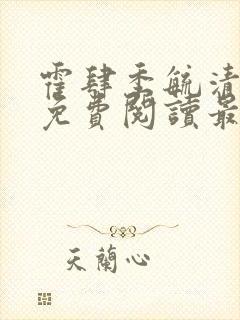 霍肆季毓清
免費閱讀最
天蘭心